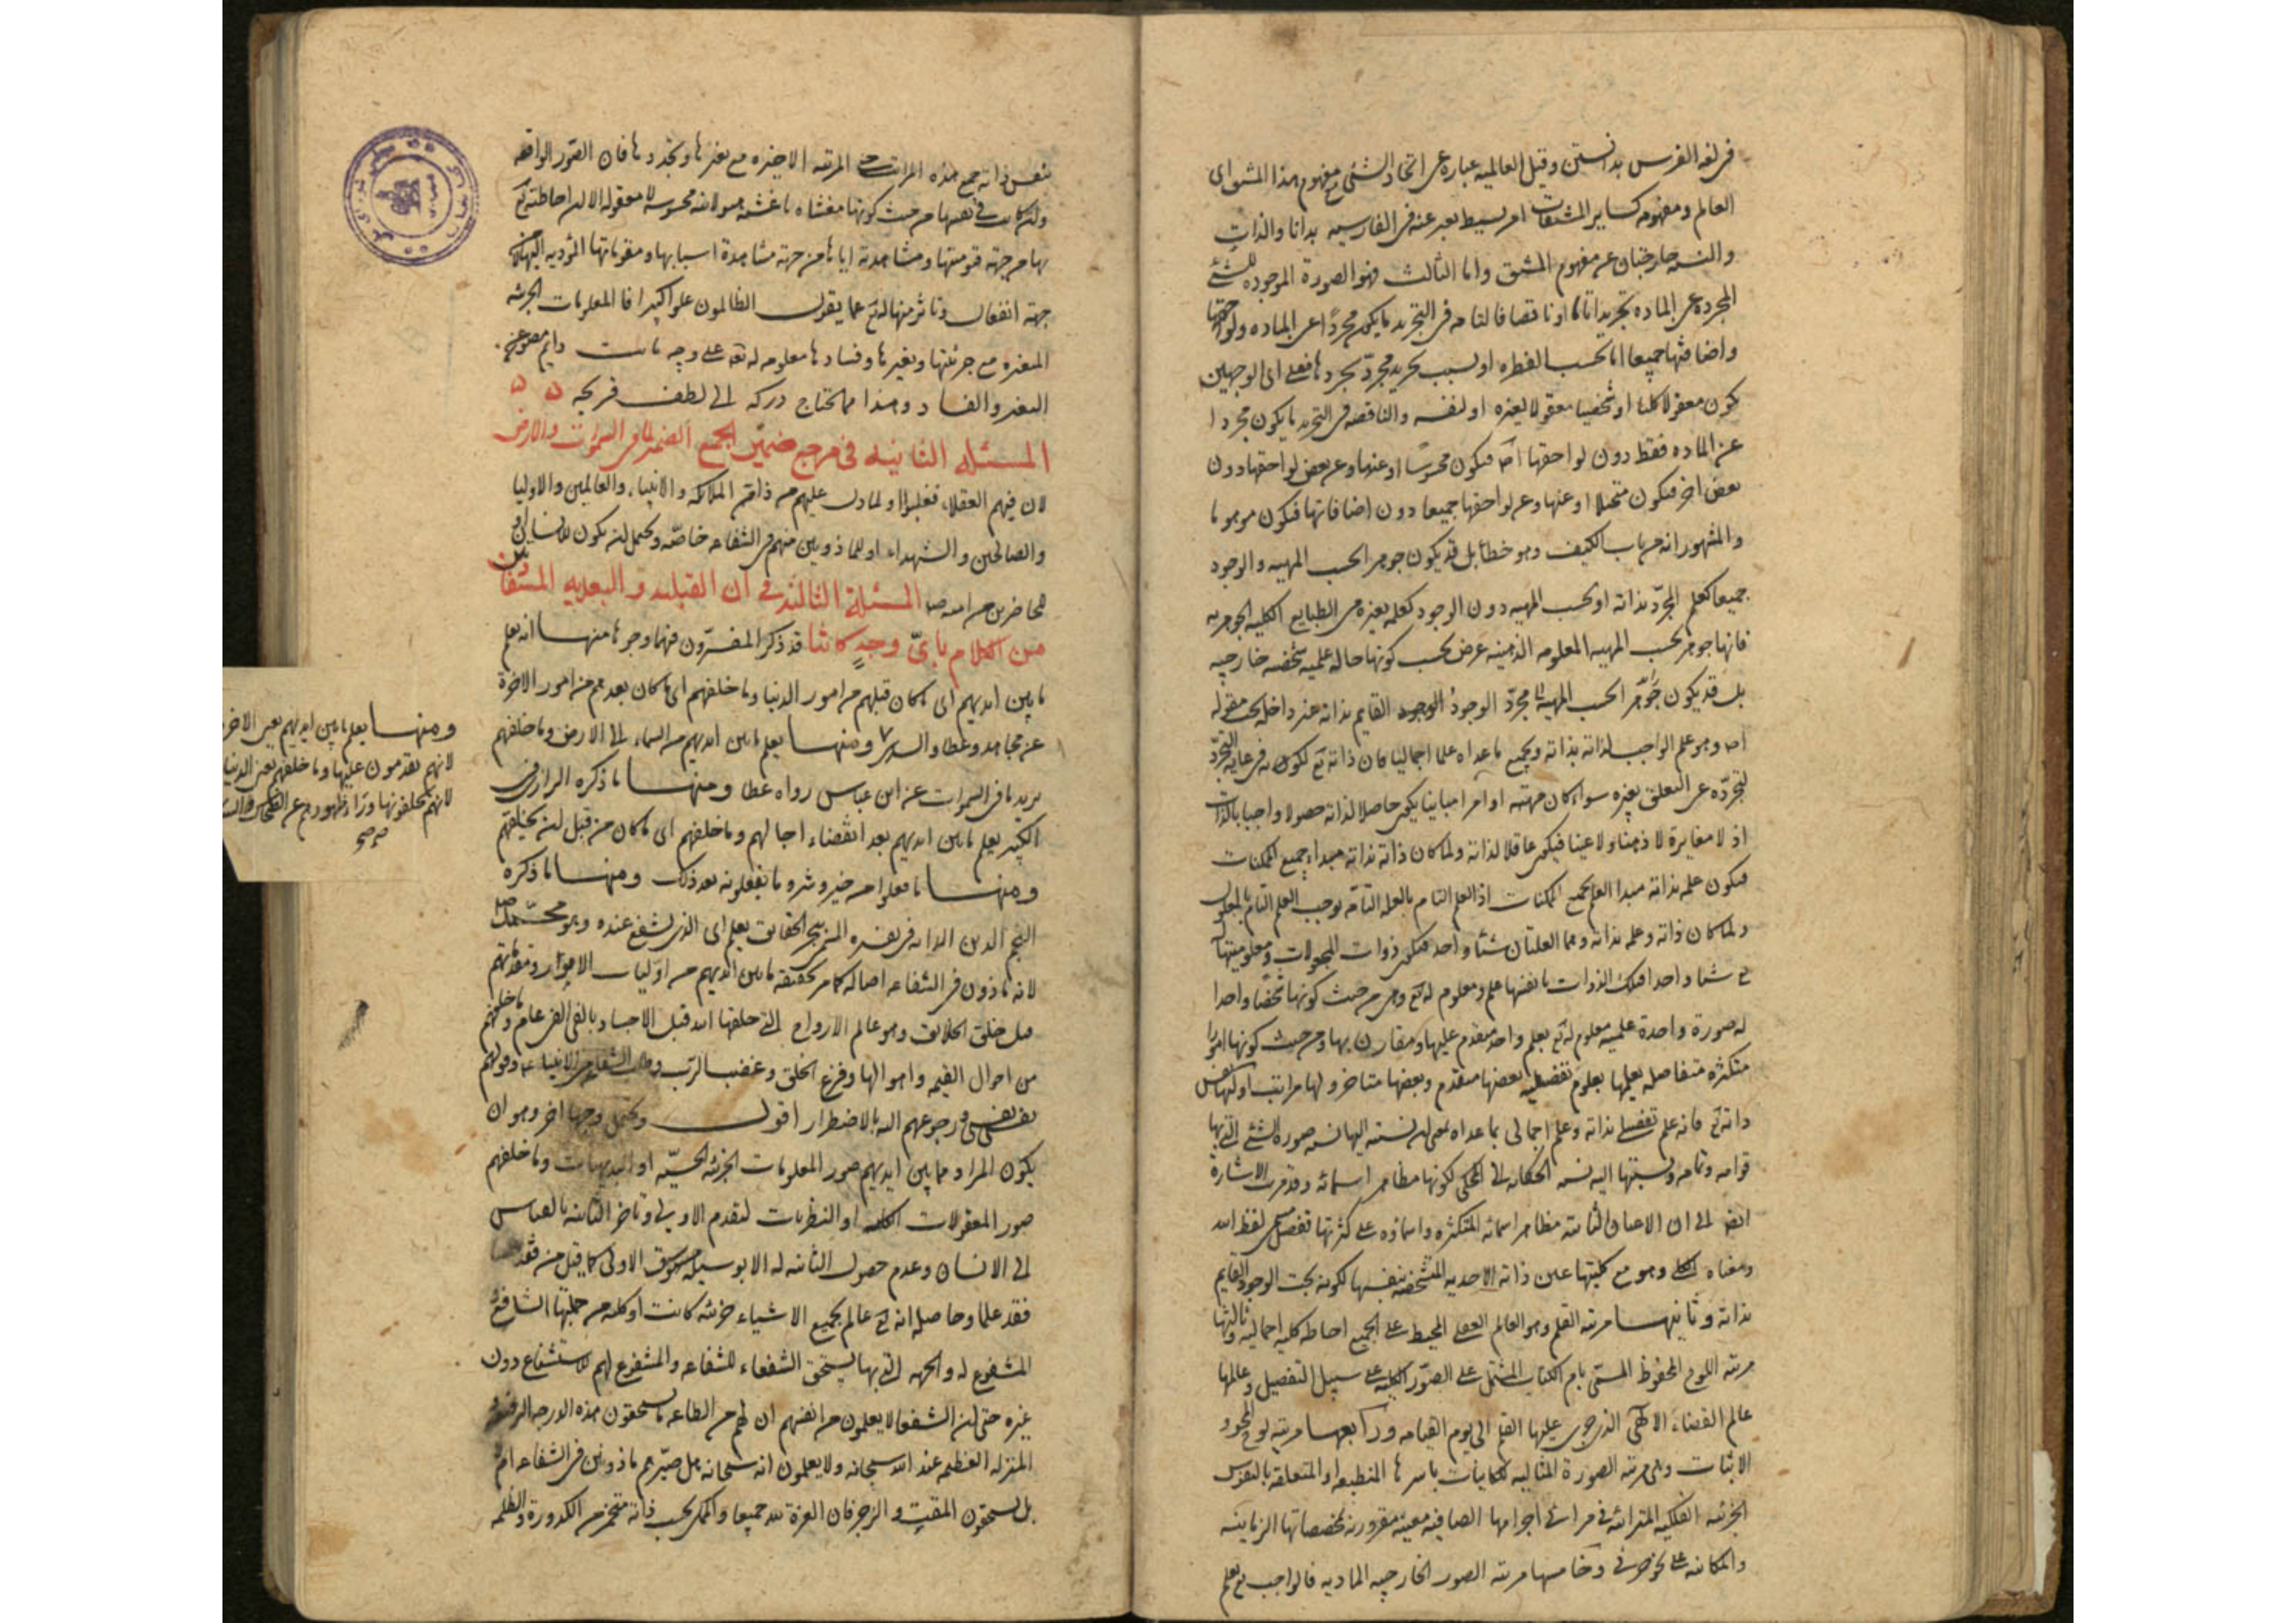 في لغة الفرس بدانستن وقيل العالمية عبارة عن اتحاد الشيء مع مفهوم هذا المشتق اى
العالم ومفهومه كساير المشتقات امر بسيط يعبر عنه في الفارسيه بدانا والذات
والنسبه خارجتان عن مفهوم المشتق واما الثالث فهو الصورة الموجوده للشئ
المجرده عن الماده تجريدا تاما او ناقصا فالتامه في التجريد ما يكون مجردا عن الماده ولواحقها
واضافتها جميعا اما بحسب الفطره او بسبب تجريد مجرد يجردها فعلى اى الوجهين
يكون معقولا كليا او شخصيا معقولا لغيره او لنفسه والناقصه في التجريد ما يكون مجردا
عن الماده فقط دون لواحقها فيكون محسوسا او عنها وعن بعض لواحقها دون
بعض اخر فيكون متخيلا او عنها وعن لواحقها جميعا دون اضافاتها فيكون موهوما
والمشهور انه من باب الكيف وهو خطأ بل قد يكون جوهرا بحسب المهيه والوجود
جميعا كعلم المجرد بذاته او بحسب المهيه دون الوجود كعلمه بغيره من الطبايع الكليه الجوهريه
فانها جوهر بحسب المهيه المعلومه الذهنيه عرض بحسب كونها حالة علميه شخصيه خارجيه
بل قد يكون جوهرا بحسب المهيه بل مجرد الوجود القايم بذاته غير داخل تحت مقوله
وهو علم الواجب لذاته بذاته وبجميع ما عداه علما اجماليا فان ذاته تع لكونه في غاية التجرد
لتجرده عن التعلق بغيره سواء كان مهيته او امرا مباينا يكون حاصلا لذاته حصولا واجبا بالذات
اذ لا مغايرة لا ذهنا ولا عينا فيكون عاقلا لذاته ولما كان ذاته بذاته مبداء جميع الممكنات
فيكون علمه بذاته مبدا العلم بجميع الممكنات اذ العلم التام بالعلة التامة يوجب العلم التام بالمعلول
ولما كان ذاته وعلمه بذاته وهما العلتان شيئا واحدا فيكون ذوات المجعولات ومعلوميتها
له شيئا واحدا فتلك الذوات بانفسها علم ومعلوم له تع وهي من حيث كونها شخصا واحدا
له صورة واحدة علمية معلوم له تع بعلم واحد متقدم عليها ومقارن بها ومن حيث كونها امورا
متكثره متفاصله يعلمها بعلوم تفصيلية بعضها متقدم وبعضها متاخر ولها مراتب اوليها نفس
ذاته تع فانه علم تفصيلي بذاته وعلم اجمالي بما عداه نسبته اليها نسبة صورة الشئ التي بها
قوامه وتمامه ونسبتها اليه نسبة الحكايه الى المحكي لكونها مظاهر اسمائه وقد مرت الاشارة
ايضا الى ان الاعيان الثابته مظاهر اسمائه المتكثره واسماؤه على كثرتها تفصيل لفظ الله
ومعناه وهو مع كليتها عين ذاته الاحديه المتشخصه بنفسها لكونه بحت الوجود القايم
بذاته وثانيها مرتبه القلم وهو العالم العقلى المحيط على الجميع احاطه كليه اجماليه وثالثها
مرتبه اللوح المحفوظ المسمى بام الكتاب المشتمل على الصور الكليه على سبيل التفصيل وعالمها
عالم القضاء الالهى الذي جرى عليها القلم الى يوم القيامه ورابعها مرتبه لوح المحو و
الاثبات وهي مرتبه الصورة المثاليه للكاينات باسرها المنطبعه او المتعلقه بالنفوس
الجزئيه الفلكيه المترائيه في مرائى اجرامها الصافيه معينه مقرونه بمخصصاتها الزمانيه
والمكانيه على نحو جزئى وخامسها مرتبه الصور الخارجيه الماديه فالواجب تع يعلم
بنفس ذاته جميع هذه المراتب حتى المرتبه الاخيره مع تغيرها وتجددها فان الصور الواقعه
ولو كانت في نفسها من حيث كونها مغشاة باغشيه هيولانيه محسوسه لا معقوله الا ان احاطته تع
بها من جهة قيوميتها ومشاهدته اياها من جهة مشاهدة اسبابها ومقوماتها المؤديه اليها لا من
جهة انفعال وتاثر منها له تع عما يقول الظالمون علوا كبيرا فالمعلومات الجزئيه
المتغيره مع جزئيتها وتغيرها وفسادها معلومه له تع على وجه ثابت دايم مصون عن
التغير والفساد وهذا مما يحتاج دركه الى لطف قريحه
المسئله الثانيه في مرجع ضميرى الجمع الضمير لما في السموات والارض
لان فيهم العقلاء فغلبوا او لما دل عليهم من ذا من الملائكه والانبياء والعالمين والاوليا
والصالحين والشهداء او للماذونين منهم في الشفاعه خاصه ويحتمل ان يكون للانسان
الحاضرين من امته ص المسئلة الثالثه في ان القبليه والبعديه المستفادتين
من الكلام باىّ وجه كانتا قد ذكر المفسرون فيها وجوها منها انه يعلم
ما بين ايديهم اى ما كان قبلهم من امور الدنيا وما خلفهم اى ما كان بعدهم من امور الاخرة
عن مجاهد وعطا والسدى ومنها يعلم ما بين ايديهم من السماء الى الارض وما خلفهم
يريد ما في السموات عن ابن عباس رواه عطا ومنها ما ذكره الرازي في
الكبير يعلم ما بين ايديهم بعد انقضاء اجالهم وما خلفهم اى ما كان من قبل ان يخلقهم
ومنها ما فعلوا من خير وشر وما يفعلونه بعد ذلك ومنها ما ذكره
النجم الدين الدايه في تفسيره المسمى ببحر الحقايق يعلم اى الذي يشفع عنده وهو محمد ص
لانه ماذون في الشفاعه اصاله كما مر تحقيقه ما بين ايديهم من اوليات الامور ومقدماتهم
قبل خلق الخلايق وهو عالم الارواح التي خلقها الله قبل الاجساد بالفى الفى عام وما خلفهم
من احوال القيمه واهوالها وفزع الخلق وغضب الرب وطلب الشفاعه من الانبياء وقولهم
نفسى نفسى ورجوعهم اليه بالاضطرار اقول ويحتمل وجها اخر وهو ان
يكون المراد مما بين ايديهم صور المعلومات الجزئيه الحسيه او البديهيات وما خلفهم
صور المعقولات الكليه او النظريات لتقدم الاولى وتاخر الثانيه بالقياس
الى الانسان وعدم حصول الثانيه له الا بوسيله سبوق الاولى كما قيل من فقد حسا
فقد علما وحاصله انه تع عالم بجميع الاشياء جزئيه كانت او كليه من جملتها الشافع و
المشفوع له والجهه التي بها يستحق الشفعاء للشفاعه والمشفوع لهم للاستشفاع دون
غيره حتى ان الشفعا لا يعلمون من انفسهم ان لهم من الطاعه ما يستحقون هذه الدرجه الرفيعه و
المنزله العظيمه عند الله سبحانه ولا يعلمون انه سبحانه هل صيرهم ماذونين في الشفاعه ام لا
بل يستحقون المقت والزجر فان العزة لله جميعا والممكن بحسب ذاته متخمر من الكدورة والظلمه
ومنها يعلم ما بين ايديهم يعنى الاخرة
لانهم يقدمون عليها وما خلفهم يعنى الدنيا
لانهم يخلفونها وراء ظهورهم عن الضحاك والكلبى